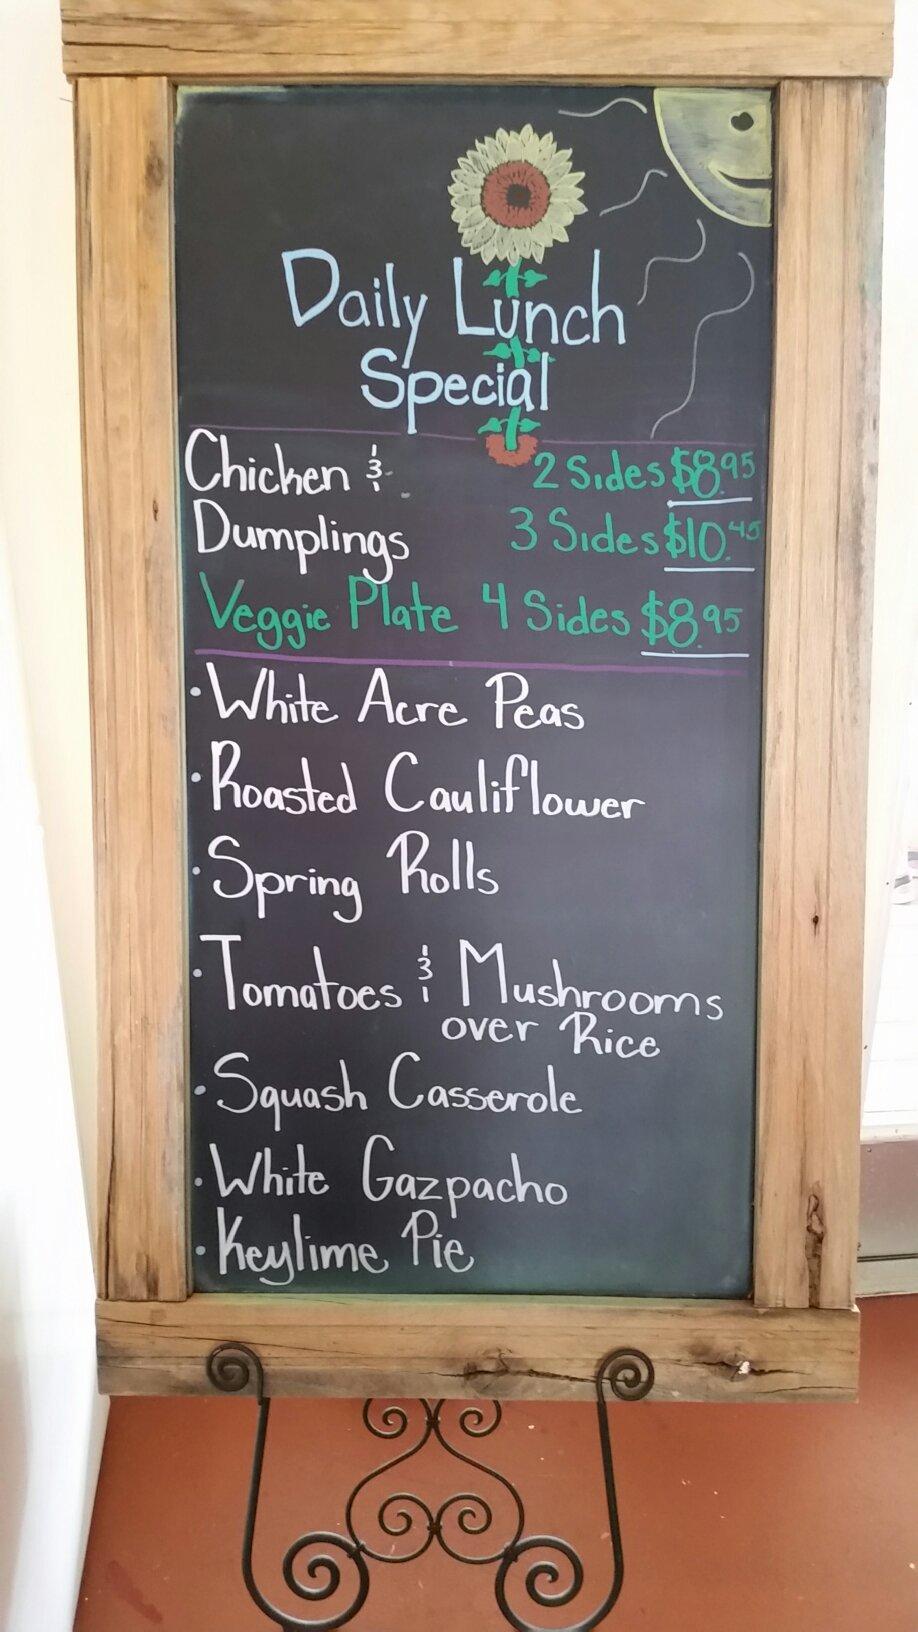 Daily Lunch
Special
Chicken & 2 Sides $8.95
Dumplings 3 Sides $10.45
Veggie Plate 4 Sides $8.95
• White Acre Peas
• Roasted Cauliflower
• Spring Rolls
• Tomatoes & Mushrooms
over Rice
• Squash Casserole
• White Gazpacho
• Keylime Pie